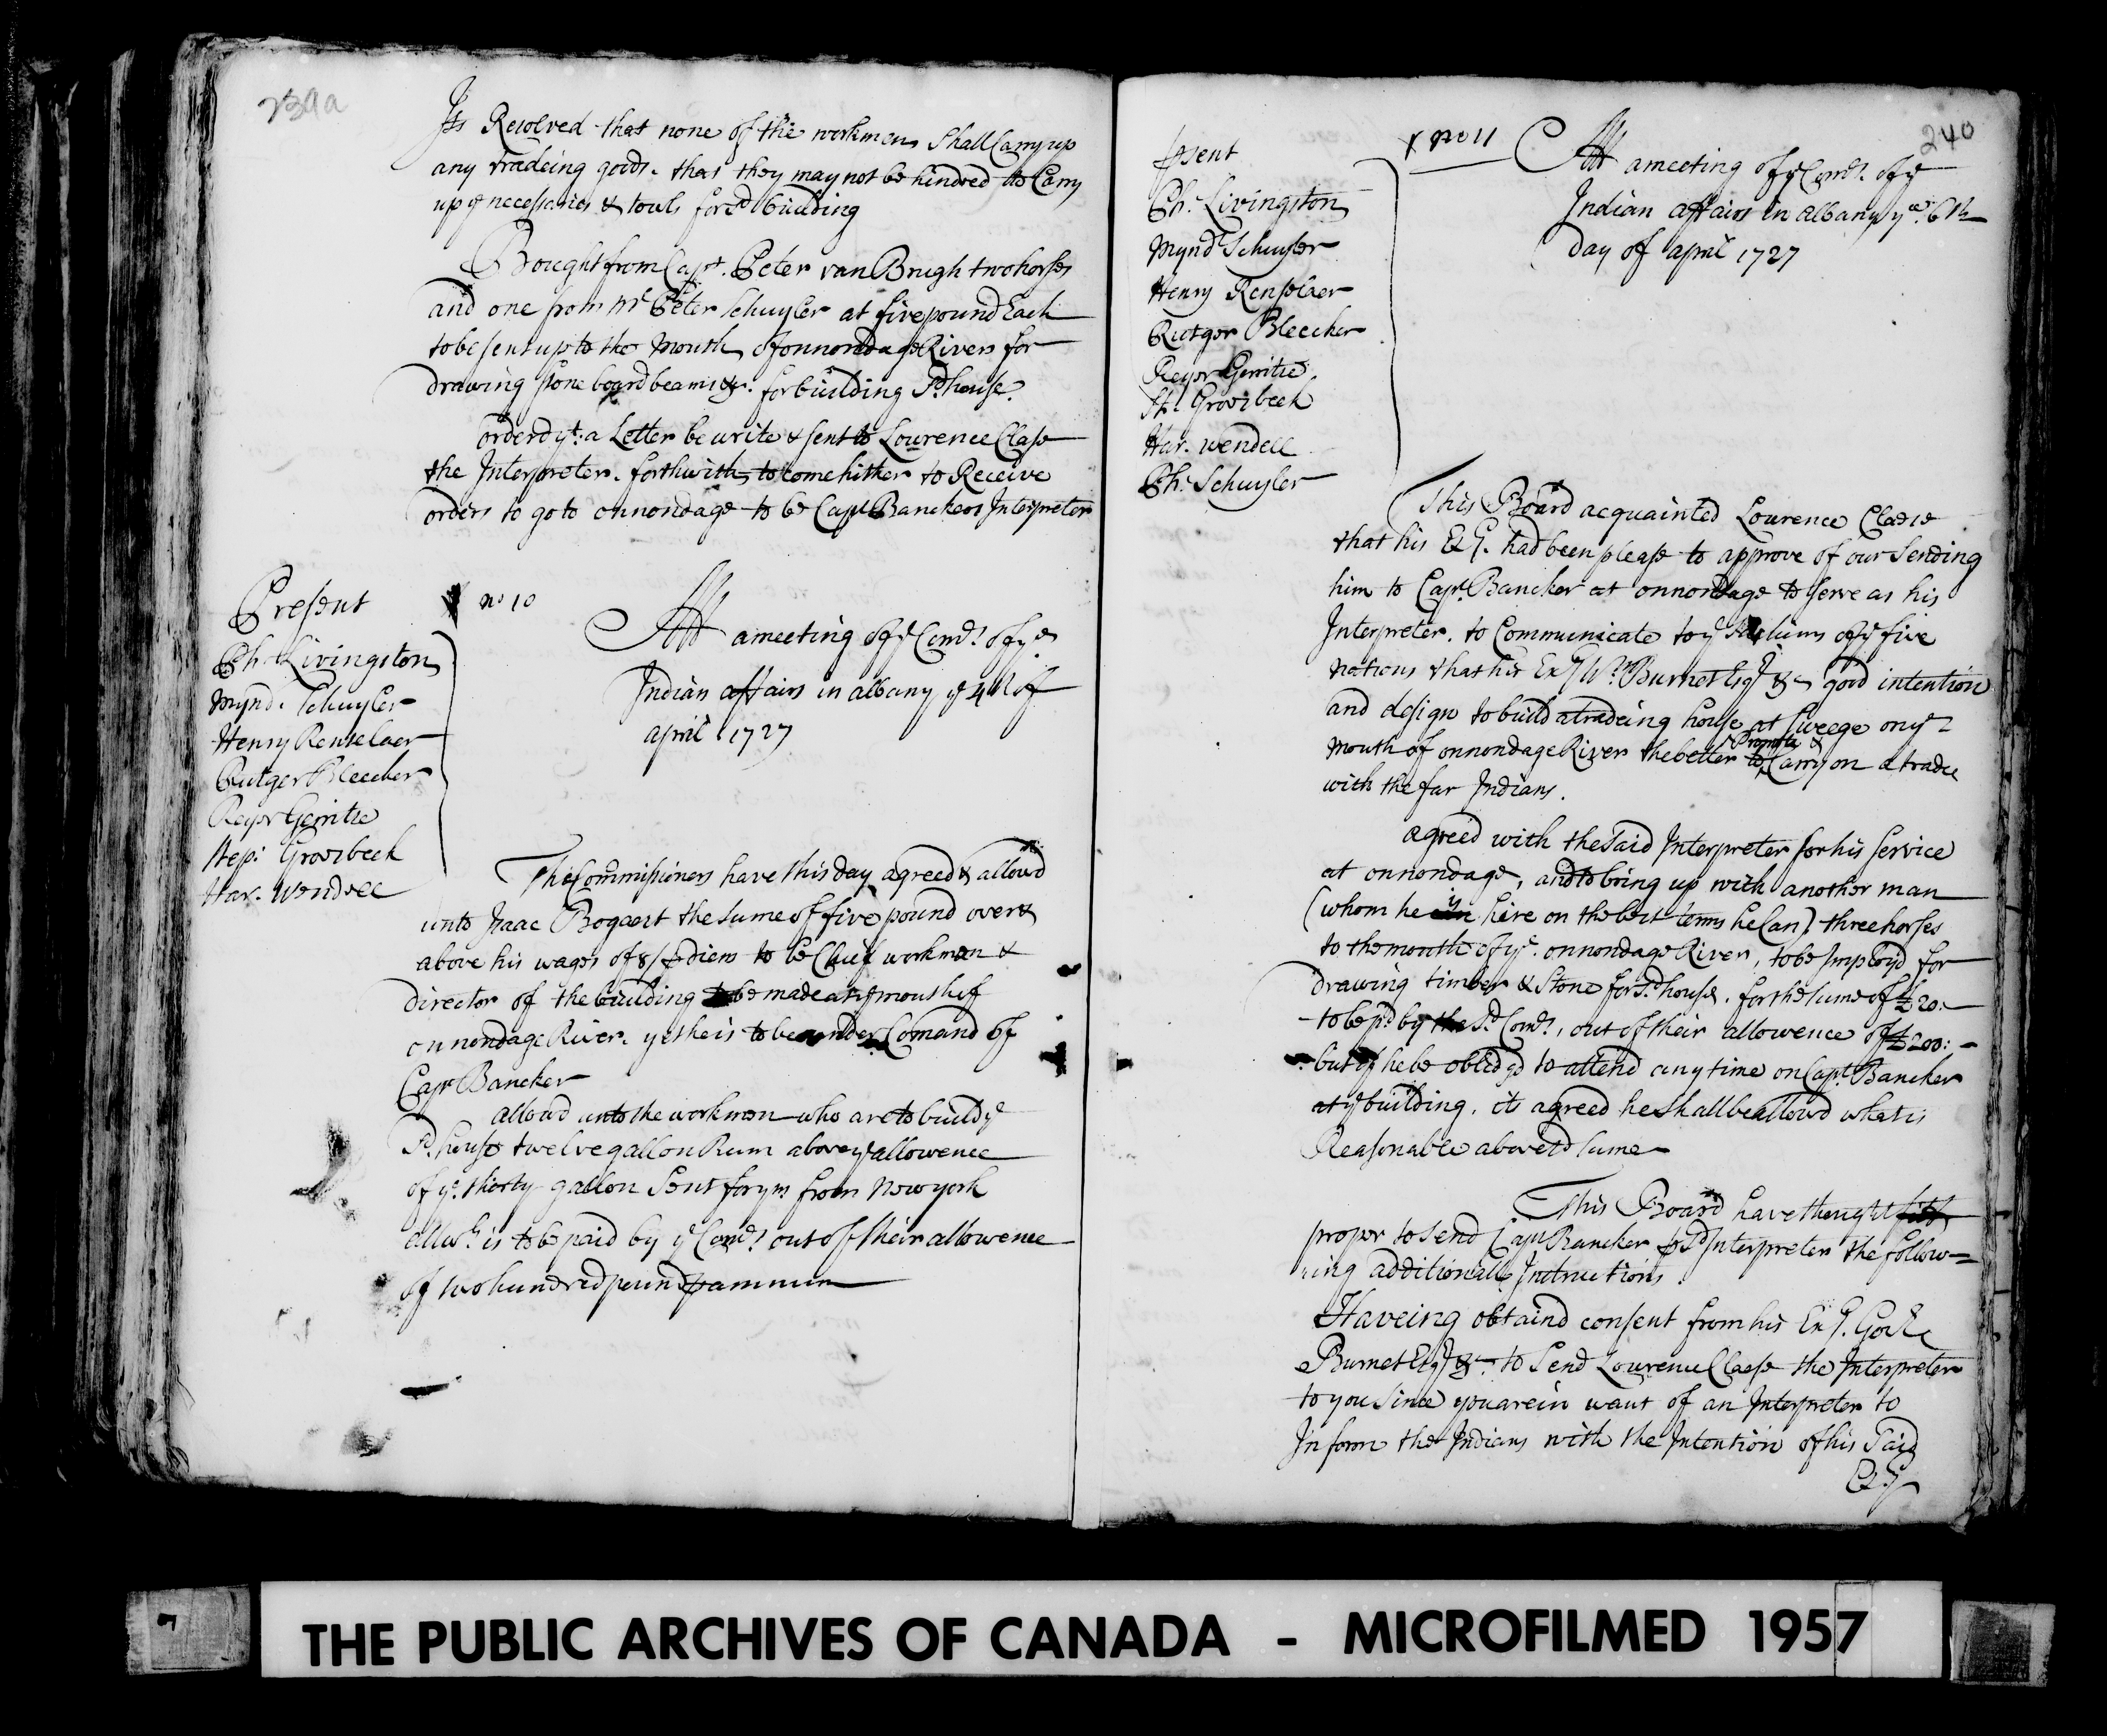 239a
Its Resolved that none of the workmen Shall Carry up
any tradeing goods. that they may not be hindred to Carry
up ye necessaries & touls for sd building
Bought from Capt. Peter van Brugh two horses
and one from Mr Peter Schuyler at five pound Each
to be sent up to the Mouth of onnondage Rivers for
drawing stone board beams &c. for building Sd. house.
orderd yt. a Letter be write & sent to Lourence Clase
the Interpreter. forthwith to come hither to Receive
orders to go to onnondage to be Capt Banckers Interpreter
Present
Ph. Livingston
Mynd. Schuyler
Henry Renselaer
Rutger Bleecker
Reyer Gerritse
Step: Groesbeek
Har. Wendell
no 10
Att a meeting of ye Comrs. of ye
Indian affairs in albany ye 4th of
april 1727
The Commissioners have this day agreed & allowd
unto Isaac Bogaert the sume of five pound over &
above his wages of 8/ ⅌ diem to be Chief workman &
director of the building to be made at ye mouth of
onnondage River. yet he is to be under Comand of
Capt Bancker
allowd unto the workmen who are to build ye
Sd. house twelve gallon Rum above ye allowence
of ye. thirty gallon Sent for ym from New york
all wh. is to be paid by ye Comrs. out of their allowence
of two hundred pound ⅌ annum
240
⅌sent
Ph. Livingston
Mynd Schuyler
Henry Renselaer
Rutger Bleecker
Reyer Gerritse
St. Groesbeek
Har. Wendell
Ph. Schuyler
x no 11
Att a meeting of ye Comrs. of ye
Indian affairs in albany ye 6th
day of april 1727
This Board acquainted Lourence Claese
that his Exy. had been please to approve of our Sending
him to Capt. Bancker at onnondage to serve as his
Interpreter. to Communicate to ye Sachims of ye five
nations that his Exy Wm. Burnet Esqr &c good intention
and design to build a tradeing house at Sweege on ye
mouth of onnondage River the better to Promote & Carry on a trade
with the far Indians.
agreed with the Said Interpreter for his Service
at onnondage, and to bring up with another man
(whom he is hire on the best terms he Can) three horses
to the mouth of ye. onnondage River, to be Imployd for
drawing timber & Stone for sd. house. for the sume of £20.-
to be pd by the Sd. Comrs. out of their allowence of £200:-
but if he be oblidgd to attend any time on Capt. Bancker
at ye building. its agreed he shall be allowd what is
Reasonable above sd sume
This Board have thought fitt
proper to send Capt Bancker ⅌ Sd Interpreter the follow=
ing additionall Instructions.
Haveing obtaind consent from his Exy. Govr.
Burnet Esqr &c. to Send Lourence Claese the Interpreter
to you Since you are in want of an Interpreter to
Inform the Indians with the Intention of his Said
Exy
THE PUBLIC ARCHIVES OF CANADA - MICROFILMED 1957
7